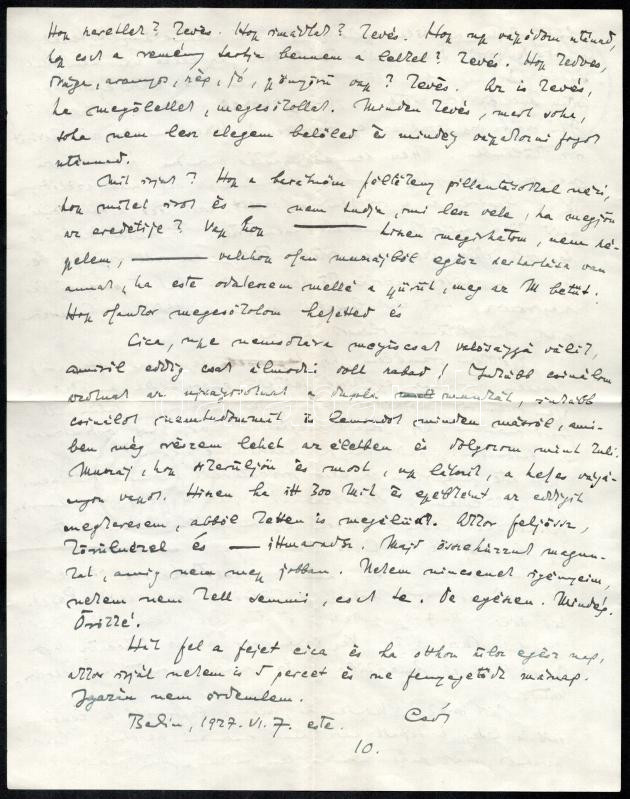 Hogy szeretlek? Kevés. Hogy imádlak? Kevés. Hogy úgy vágyódom utánad,
hogy csak a remény tartja bennem a lelket? Kevés. Hogy kedves,
drága, aranyos, szép, jó, gyönyörű vagy? Kevés. Az is kevés,
ha megöllellek, megcsókollak. Minden kevés, mert soha,
soha nem lesz elegem belőled és mindég vágyakozni fogok
utánnad.
Mit írjak? Hogy a barátnőm féltékeny pillantásokkal néz,
hogy neked írok és — nem tudja, mi lesz vele, ha megjön
az eredetije? Vagy hogy ——— hiszen megírhatom, nem szé-
gyelem, ———
annak, ha este odateszem mellé a gyűrűt, meg az M betűt.
Hogy olyankor megcsókolom helyetted és
Cica, ugye nemsokára mégiscsak valósággá válik,
amiről eddig csak álmodni volt szabad! Inkább csinálom
az újságírónak a dupla munkát, inkább
csinálok nemtudommit és lemondok minden másról, ami-
ben még részem lehet az életben és dolgozom mint kuli.
Muszáj, hogy sikerüljön és most, úgy látszik, a helyes vágá-
nyon vagyok. Hiszen ha itt 300 Mk és egyébként az eddigit
megkeresem, abból ketten is megélünk. Akkor feljössz,
körülnézel és — ittmaradsz. Majd összehúzzuk magun-
kat, amíg nem megy jobban. Nekem nincsenek igényeim,
nekem nem kell semmi, csak te. De egészen. Mindég.
Örökké.
Hát fel a fejjel cica és ha otthon ülsz egész nap,
akkor írjál nekem is 5 percet és ne fenyegetődz máskor.
Igazán nem érdemlem.
Berlin, 1927. VI. 7. este. Csók
10.